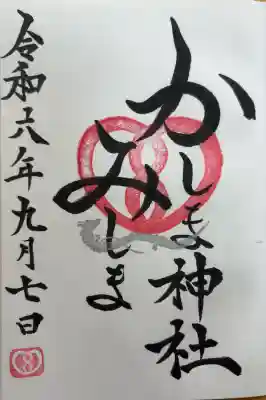 かしま神社
みしま
令和六年九月七日